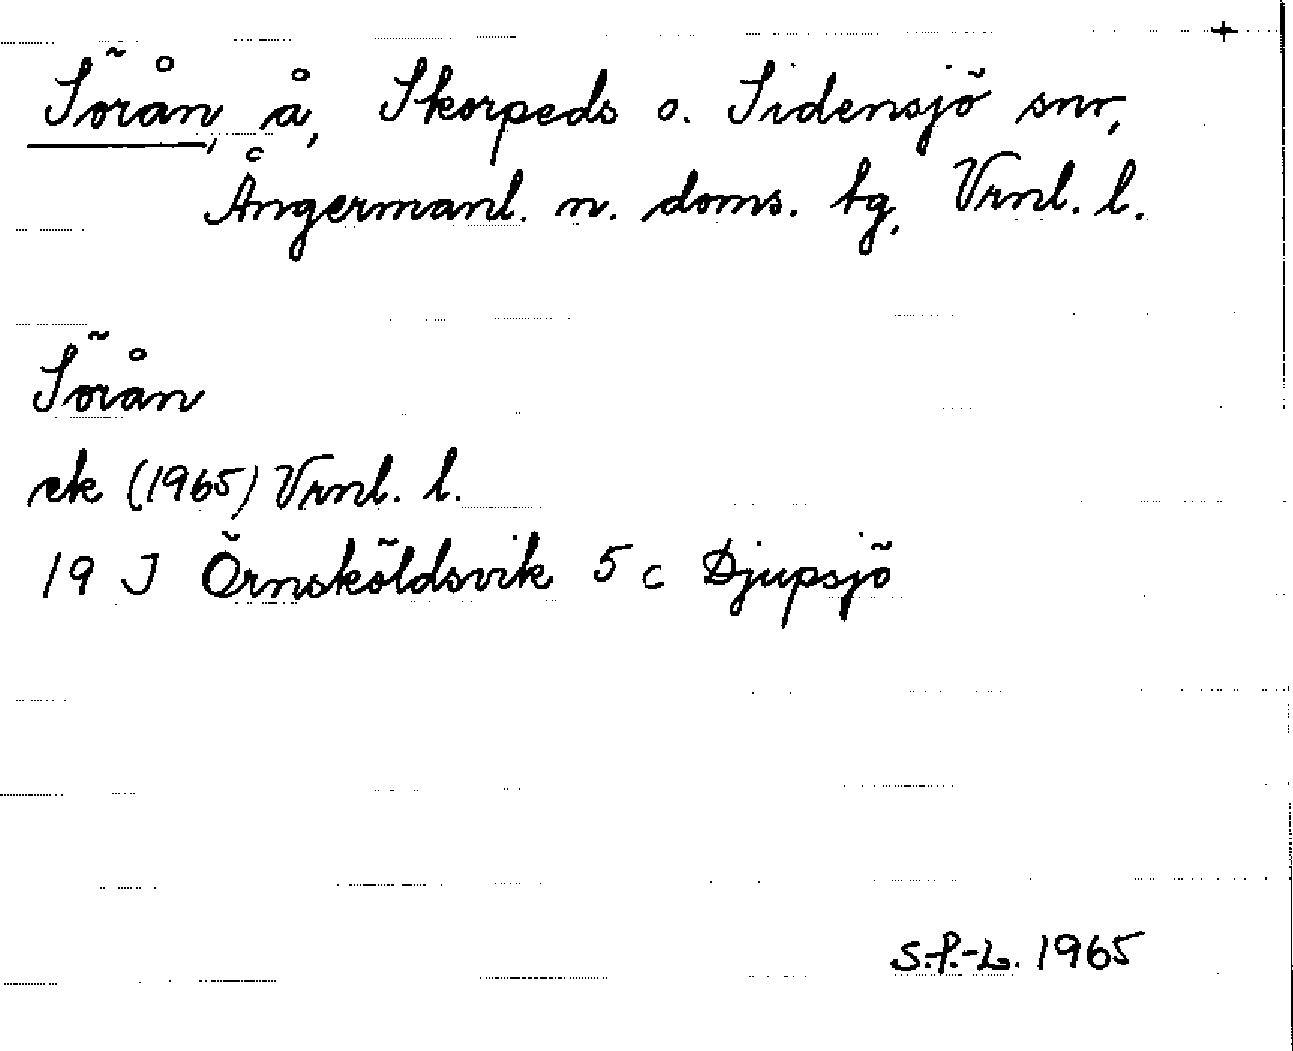 +
Sörån, å, Skorpeds o. Sidensjö snr,
Ångermanl. n. doms. tg, Vrnl. l.
Sörån
ek (1965) Vrnl. l.
19 J Örnsköldsvik 5 c Djupsjö
S.P.-L. 1965